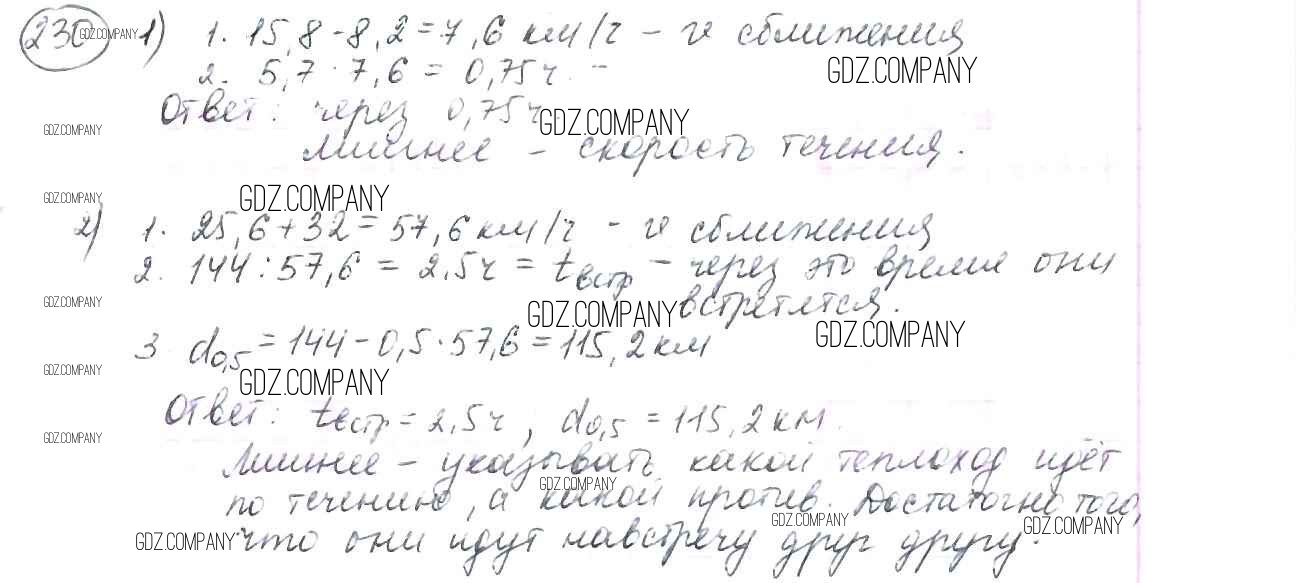 230 GDZ.COMPANY 1) 1. 15,8 - 8,2 = 7,6 км/ч - v сближения
GDZ.COMPANY
2. 5,7 : 7,6 = 0,75 ч. -
Ответ: через 0,75ч
GDZ.COMPANY GDZ.COMPANY
лишнее - скорость течения.
GDZ.COMPANY GDZ.COMPANY
2) 1. 25,6 + 32 = 57,6 км/ч - v сближения
2. 144 : 57,6 = 2,5ч = tвстр - через это время они
встретятся.
GDZ.COMPANY GDZ.COMPANY GDZ.COMPANY
3 d0,5 = 144 - 0,5 · 57,6 = 115,2 км
GDZ.COMPANY GDZ.COMPANY
Ответ: tвстр = 2,5ч, d0,5 = 115,2 км.
GDZ.COMPANY
Лишнее - указывать какой теплоход идёт
GDZ.COMPANY
по течению, а какой против. Достаточно того,
GDZ.COMPANY GDZ.COMPANY GDZ.COMPANY
что они идут навстречу друг другу.